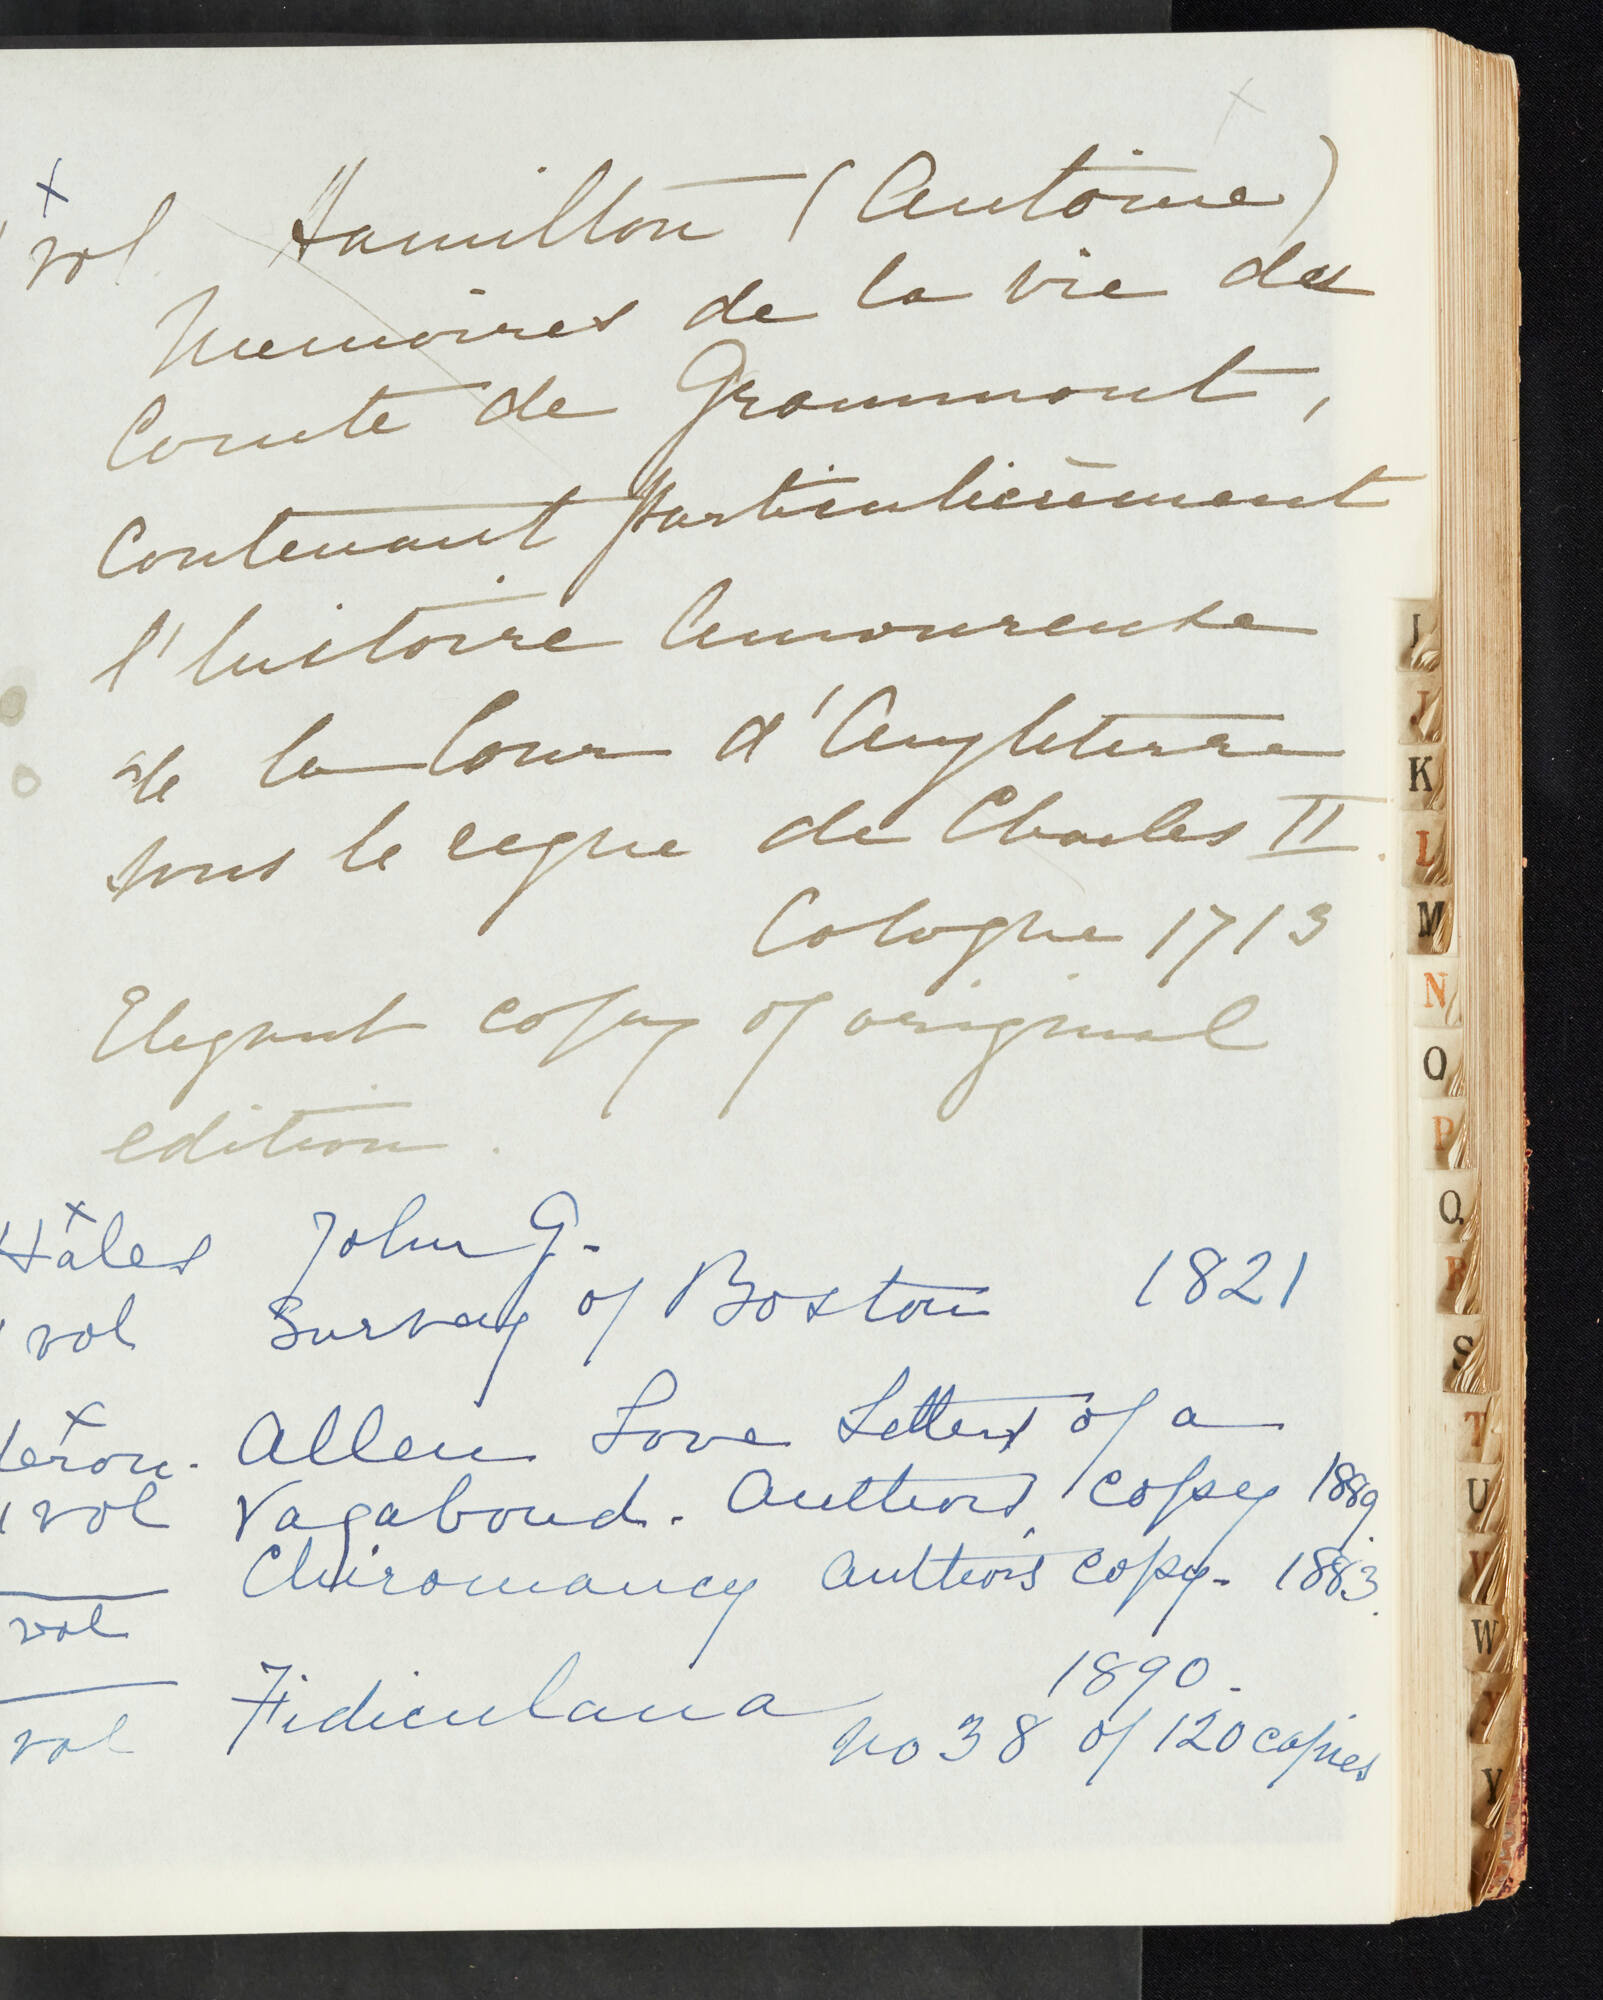 x
vol Hamilton (Antoine)
Memoires de la vie du
Comte de Grammont,
contenant particulièrement
l'histoire amoureuse
de la Cour d'Angleterre
sous le regne de Charles II.
Cologne 1713
Elegant copy of original
edition.
Hales John G.
1 vol Survey of Boston 1821
Heron. Allen Love Letters of a
1 vol Vagabond. Authors copy 1889.
Chiromancy author's copy. 1883.
vol
1890.
vol Fidiculana
No 38 of 120 copies
I
J
K
L
M
N
O
P
Q
R
S
T
U
V
W
X
Y